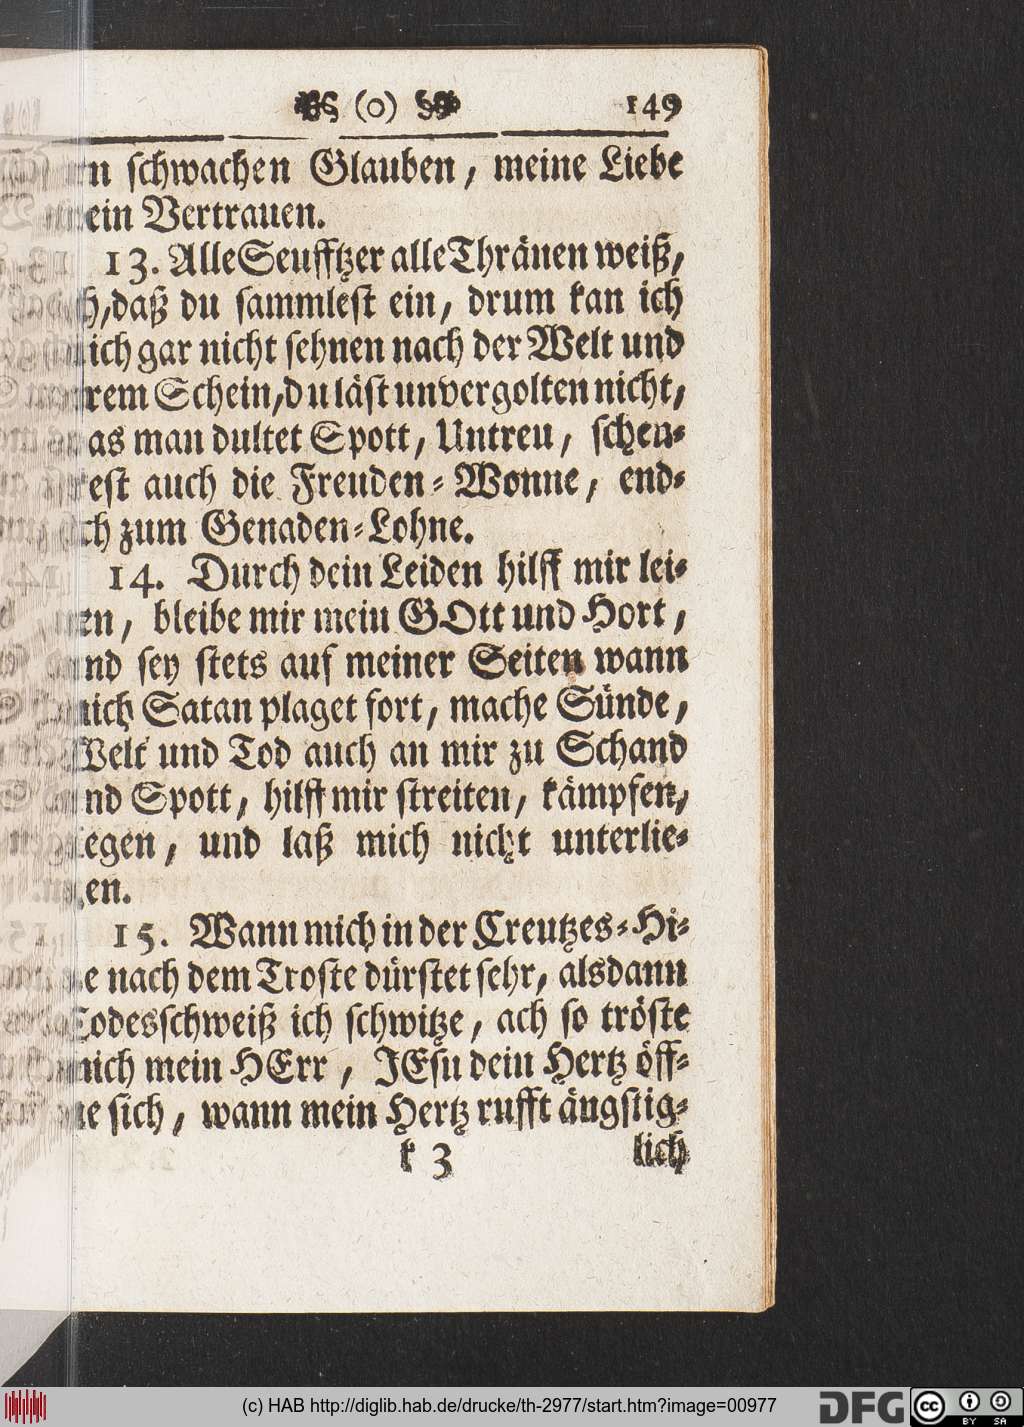 (o) 149
schwachen Glauben, meine Liebe
ein Vertrauen.
13. Alle Seufftzer alle Thränen weiß,
daß du sammlest ein, drum kan ich
ich gar nicht sehnen nach der Welt und
rem Schein, du läst unvergolten nicht,
as man dultet Spott, Untreu, schen-
est auch die Freuden-Wonne, end-
ch zum Genaden-Lohne.
14. Durch dein Leiden hilff mir lei-
en, bleibe mir mein GOtt und Hort,
nd sey stets auf meiner Seiten wann
ich Satan plaget fort, mache Sünde,
Welt und Tod auch an mir zu Schand
nd Spott, hilff mir streiten, kämpfen,
egen, und laß mich nicht unterlie-
en.
15. Wann mich in der Creutzes-Hi-
e nach dem Troste dürstet sehr, alsdann
Todesschweiß ich schwitze, ach so tröste
ich mein HErr, JEsu dein Hertz öff-
e sich, wann mein Hertz rufft ängstig-
k 3 lich
(c) HAB http://diglib.hab.de/drucke/th-2977/start.htm?image=00977
DFG
cc BY SA